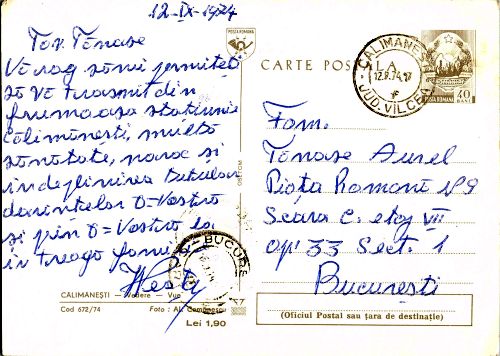 12-IX-1974
Tov. Tănase
Vă rog să-mi permiteți
să vă transmit din
frumoasa stațiunii
Călimănești, multă
sănătate, noroc și
îndeplinirea tutulor
dorințelor D=Vastră
și prin D=Vastră la
întreaga familie
CĂLIMĂNEȘTI — Vedere — Vue
Cod 672/74
Foto : Al.
Lei 1,90
POSTA ROMÂNĂ
CARTE POȘTALĂ
CALIMANEȘTI
12.9.74.17
JUD. VÎLCEA
POSTA ROMANA
40 BANI
Fam.
Tănase Aurel
Piața Romană N° 9
Scara C. etaj VII
ap 33 Sect. 1
București
BUCURE
(Oficiul Postal sau țara de destinație)